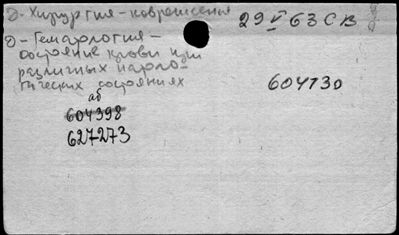 д-Хирургия-новрешения 29 V 63 СВ
д-Гематология-
состояние крови при
различных патоло-
гических состояниях 604130
аб
604398
627273